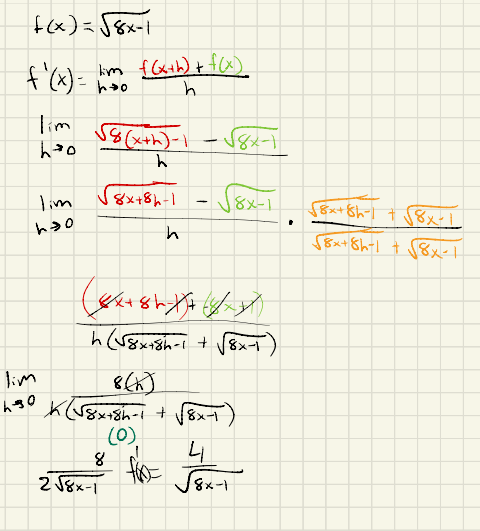 f(x) = √(8x-1)
f'(x) = lim h→0 (f(x+h) + f(x)) / h
lim h→0 (√(8(x+h)-1) - √(8x-1)) / h
lim h→0 (√(8x+8h-1) - √(8x-1)) / h · (√(8x+8h-1) + √(8x-1)) / (√(8x+8h-1) + √(8x-1))
((8x+8h-1)+(-8x+1)) / (h(√(8x+8h-1) + √(8x-1)))
lim h→0 8(h) / (h(√(8x+8h-1) + √(8x-1)))
(0)
8 / (2√(8x-1)) f'(x) = 4 / √(8x-1)